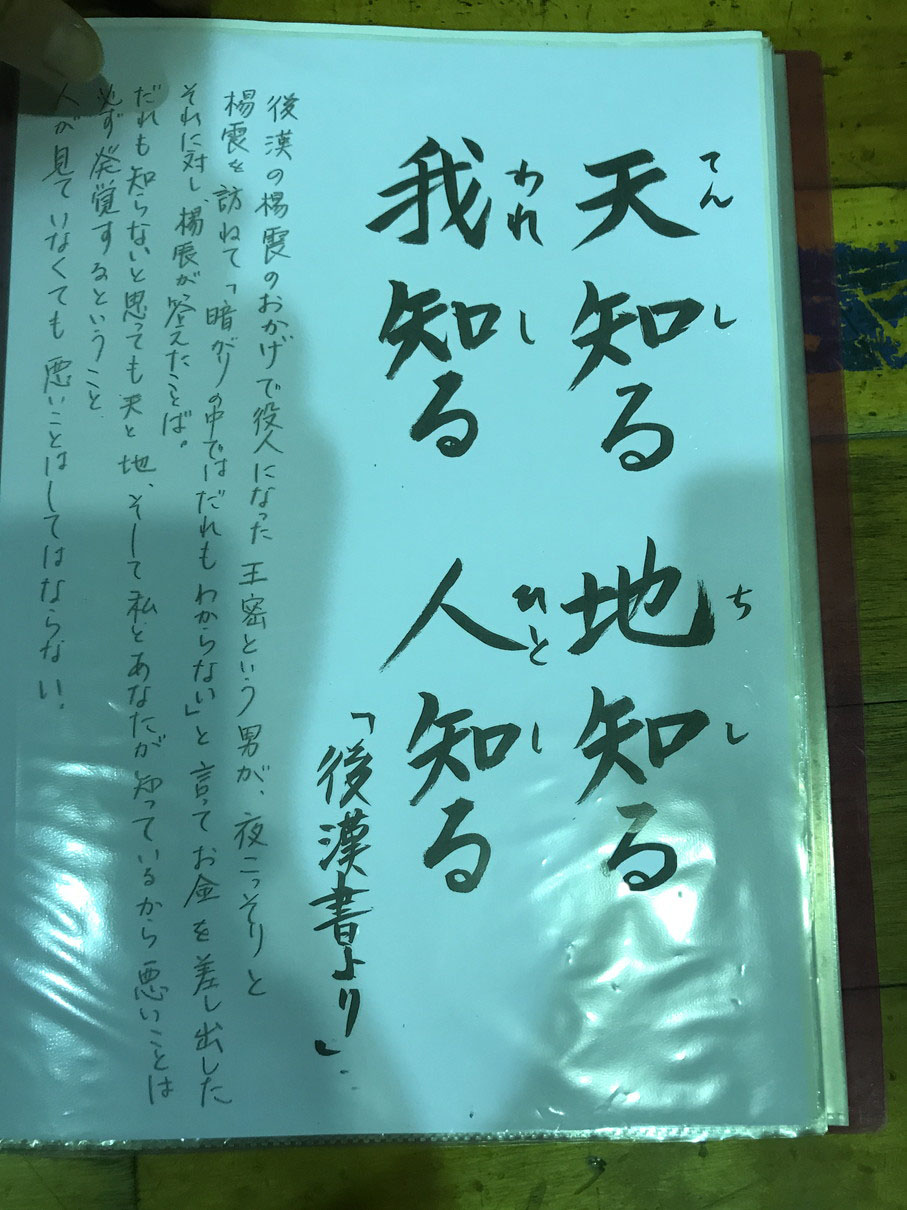 天知る 地知る
てん し ち し
我知る 人知る
われ し ひと し
「後漢書より」
後漢の楊震のおかげで役人になった王密という男が、夜こっそりと
楊震を訪ねて「暗がりの中ではだれもわからない」と言ってお金を差し出した
それに対し、楊震が答えたことば。
だれも知らないと思っても天と地、そして私とあなたが知っているから悪いことは
必ず発覚するということ
人が見ていなくても悪いことはしてはならない。